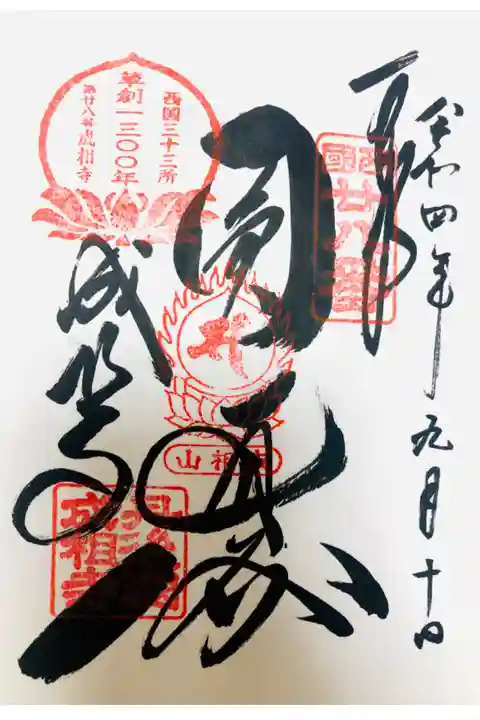 令和四年九月十日
奉拝
西國廿八番
圓
成相山
西国三十三所
草創一三〇〇年
第廿八番成相寺
成相寺
成相寺